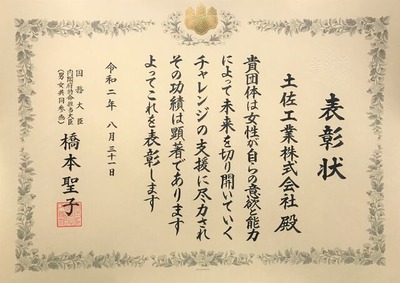 表彰状
土佐工業株式会社 殿
貴団体は女性が自らの意欲と能力
によって未来を切り開いていく
チャレンジの支援に尽力され
その功績は顕著であります
よってこれを表彰します
令和二年 八月三十一日
国務大臣
内閣府特命担当大臣
(男女共同参画)
橋本聖子